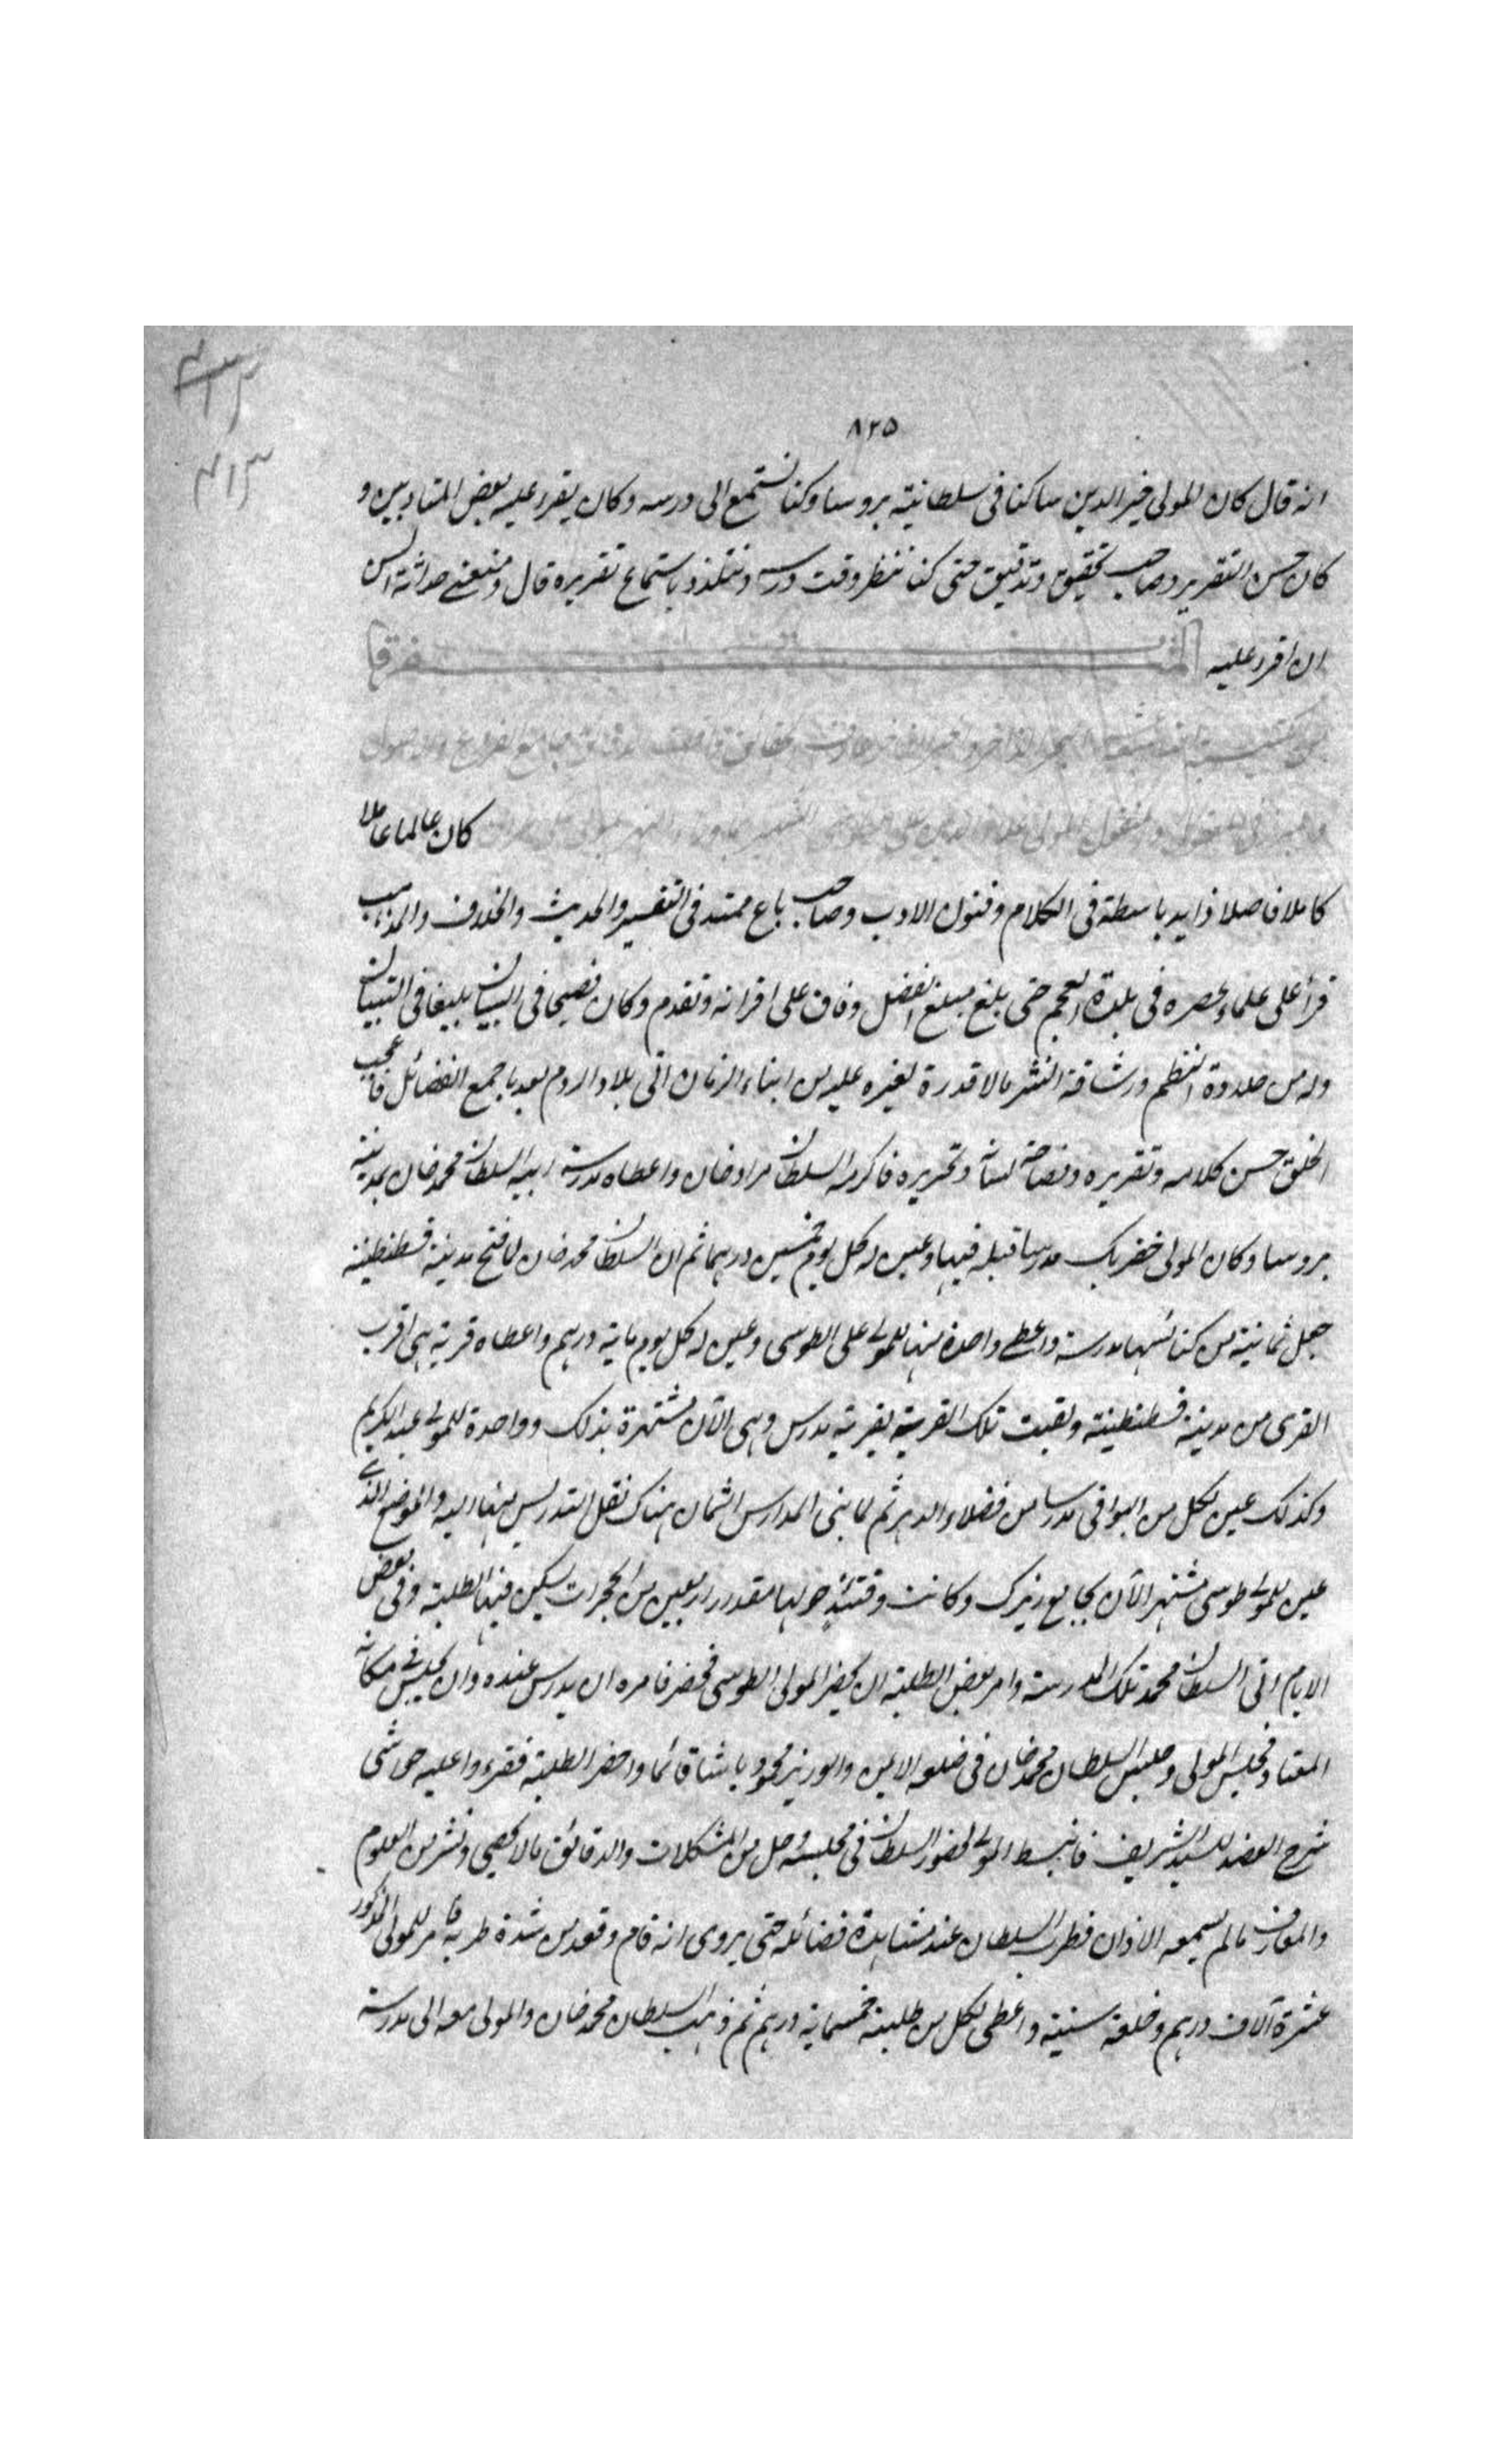 ٨٢٥
انه قال كان المولى خير الدين ساكنا فى سلطانية بروسا وكنا نستمع الى درسه وكان يقرء عليه بعض المتادبين و
كان حسن التقرير وصاحب تحقيق وتدقيق حتى كنا ننتظر وقت درسه ونتلذذ باستماع تقريره قال ومنعنى حداثة السن
ان اقرء عليه
كان عالما عاملا
كاملا فاضلا ذا يد باسطة فى الكلام وفنون الادب وصاحب باع ممتد فى التفسير والحديث والخلاف والمذاهب
قرأ على علماء عصره فى بلدة العجم حتى بلغ مبلغ الفضل وفاق على اقرانه وتقدم وكان فصيحا فى البيان بليغا فى التبيان
وله من حلاوة النظم ورشاقة النثر مالا قدرة لغيره عليه من ابناء الزمان اتى بلاد الروم بعد ما جمع الفضائل فاعجب
الخلق حسن كلامه وتقريره وفصاحة لسانه وتحريره فاكرمه السلطان مراد خان واعطاه مدرسة ابيه السلطان محمد خان بمدينة
بروسا وكان المولى خضر بك مدرسا قبله فيها وعين له كل يوم خمسين درهما ثم ان السلطان محمد خان لما فتح مدينة قسطنطينة
جعل ثمانية من كنائسها مدرسة واعطى واحدة منها للمولى على الطوسى وعين له كل يوم ماية درهم واعطاه قرية هى اقرب
القرى من مدينة قسطنطينة ولقبت تلك القرية بقرية مدرس وهى الآن مشتهرة بذلك وواحدة للمولى عبد الكريم
وكذلك عين لكل من البواقى مدرسا من فضلاء الدهر ثم لما بنى المدارس الثمان هناك نقل التدريس منها اليه والموضع الذى
عين للمولى طوسى مشتهر الآن بجامع زيرك وكانت وقتئذ حولها مقدار اربعين من الحجرات يسكن فيها الطلبة وفى بعض
الايام اتى السلطان محمد تلك المدرسة وامر بعض الطلبة ان يحضر المولى الطوسى فحضر فامره ان يدرس عنده وان يجلس فى مكانه
المعتاد فجلس المولى وجلس السلطان محمد خان فى ضلعه الايمن والوزير محمود باشا قائما واحضر الطلبة فقرءوا عليه حواشى
شرح العضد للسيد الشريف فانبسط المولى لحضور السلطان فى مجلسه وحل من المشكلات والدقائق مالا يحصى ونشر من العلوم
والمعارف مالم يسمعه الاذان فطرب السلطان عند مشاهدة فضائله حتى يروى انه قام وقعد من شدة طربه فامر للمولى المذكور
عشرة آلاف درهم وخلعة سنية واعطى لكل من طلبته خمسماية درهم ثم ذهب السلطان محمد خان والمولى معه الى مدرسة